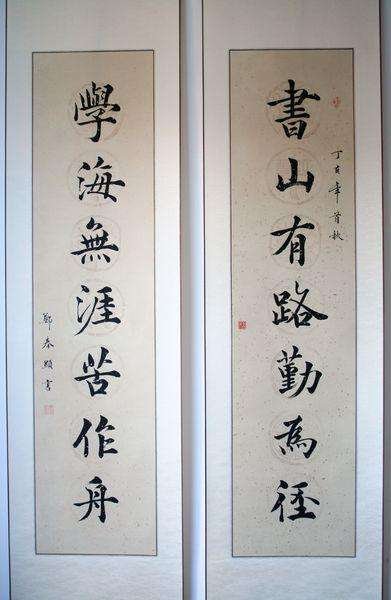 書山有路勤為徑
丁亥年首秋
學海無涯苦作舟
鄭泰顯書